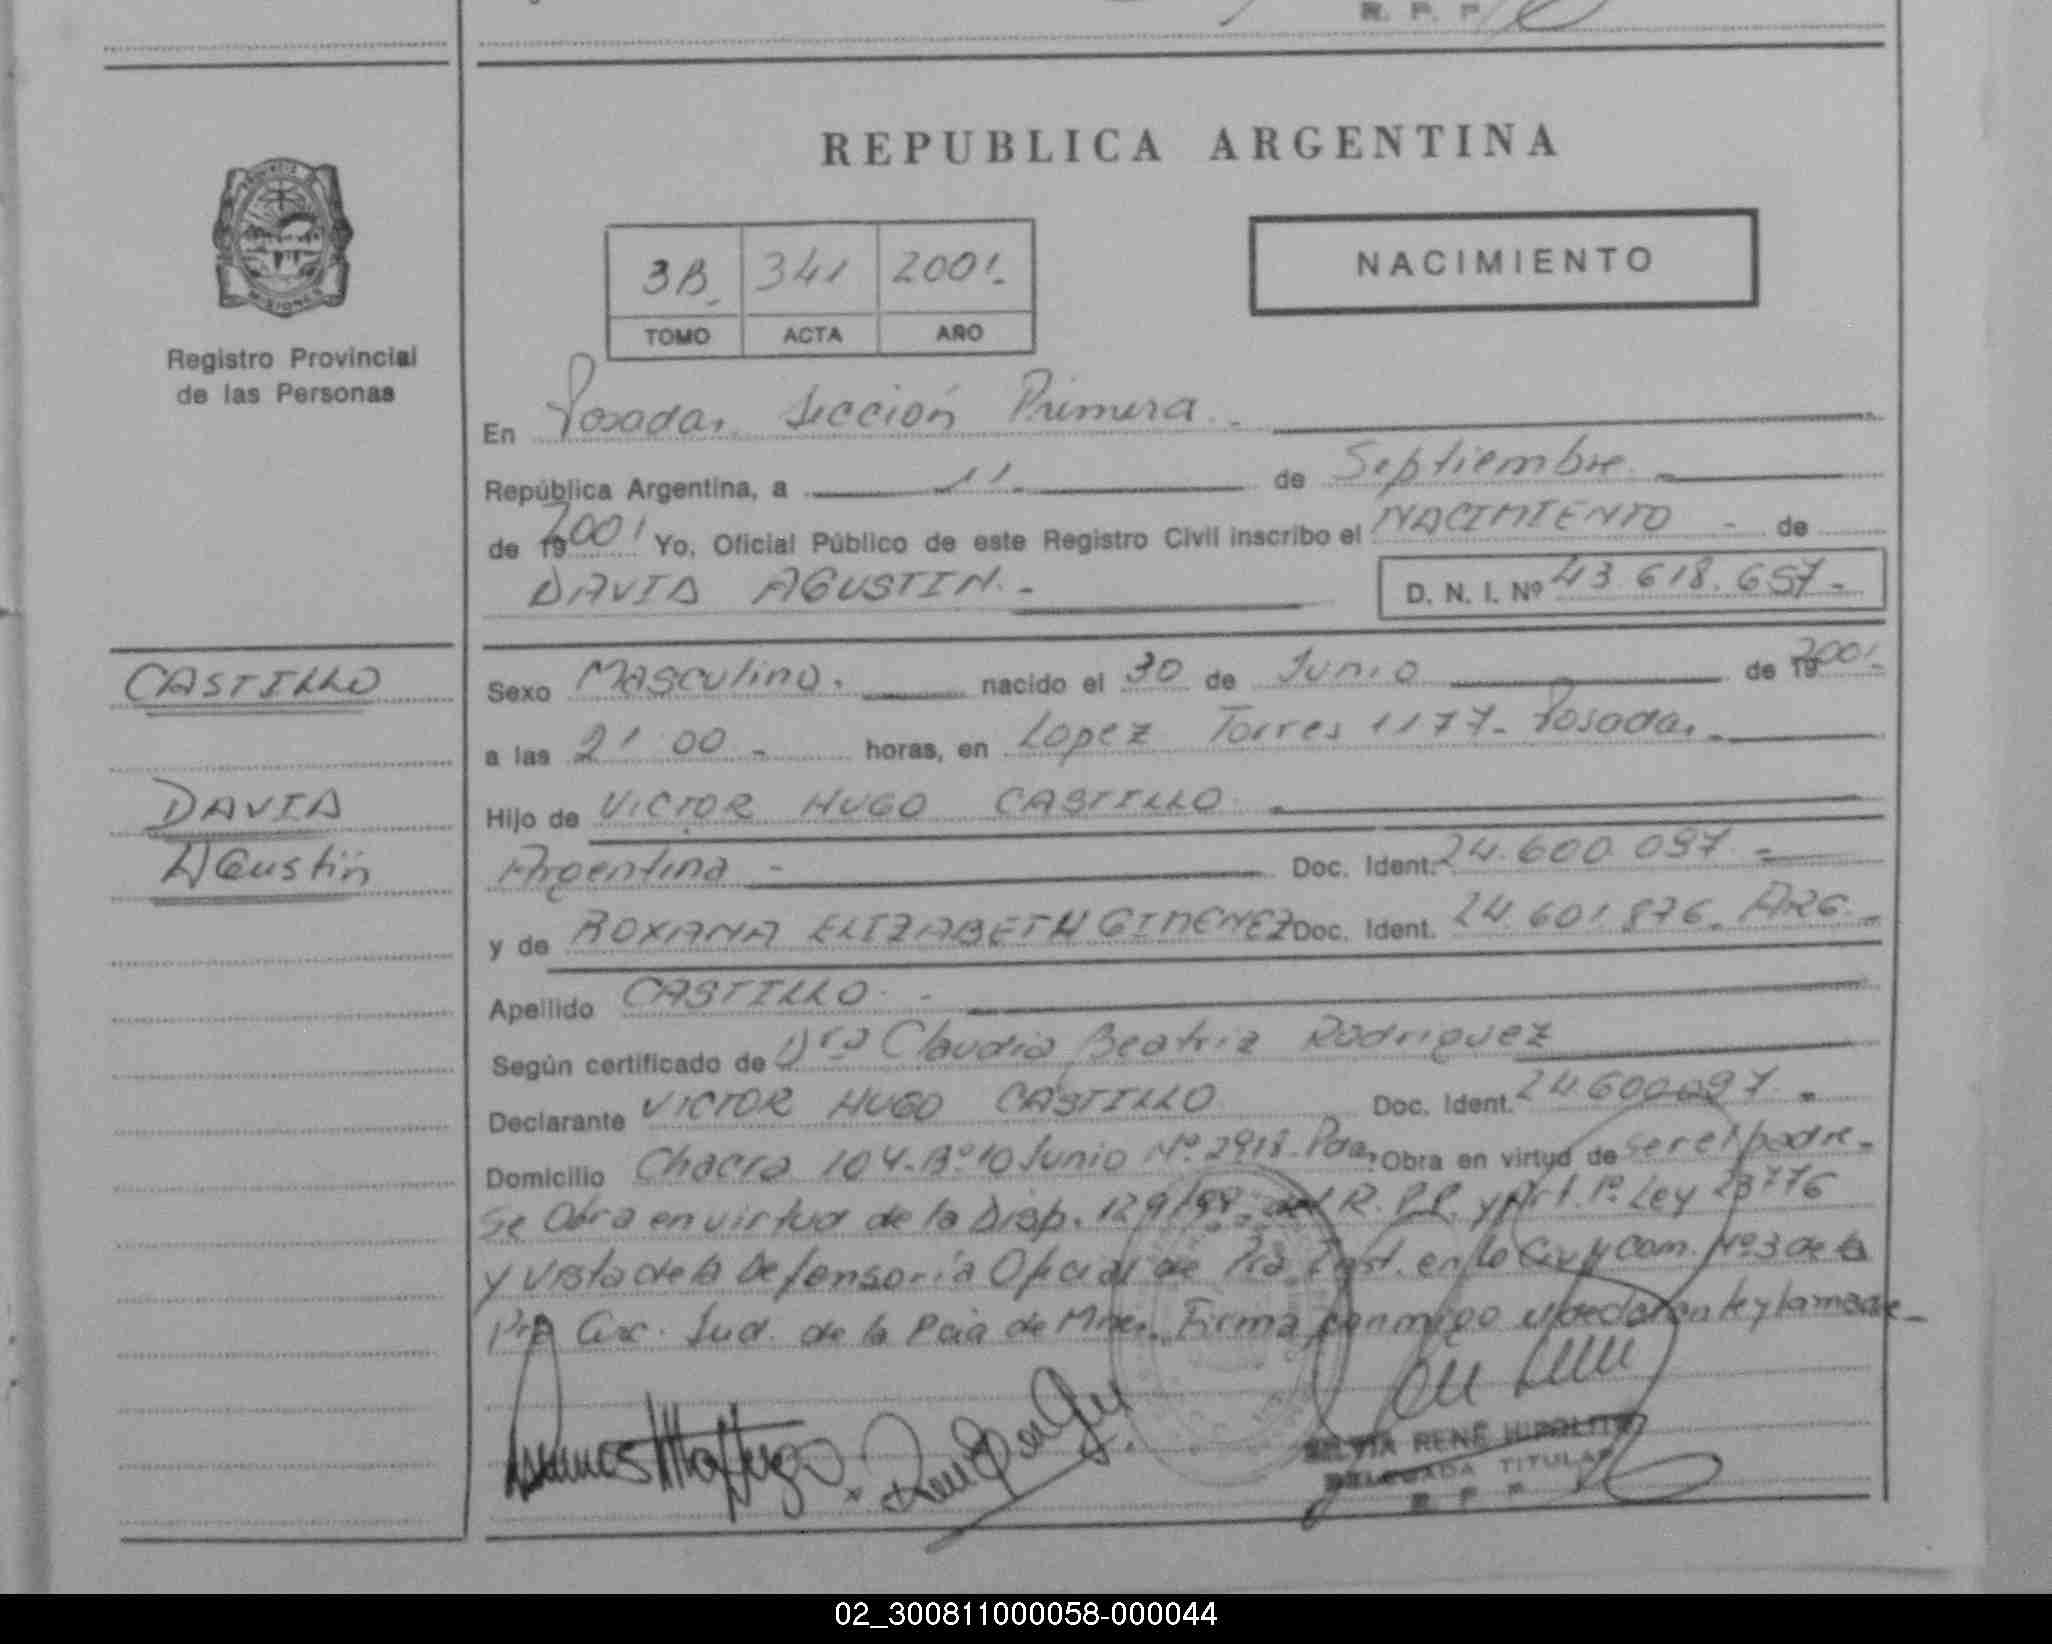 R. P. P.
REPUBLICA ARGENTINA
3B. 341 2001.
TOMO ACTA AÑO
NACIMIENTO
Registro Provincial
de las Personas
En Posadas, Sección Primera.
República Argentina, a 11 de Septiembre.
de 19 2001 Yo, Oficial Público de este Registro Civil inscribo el NACIMIENTO - de
DAVID AGUSTIN. - D. N. I. Nº 43.618.657-
CASTILLO
DAVID
AGustín
Sexo Masculino. nacido el 30 de Junio de 19 2001.
a las 21 00 - horas, en Lopez Torres 1177- Posadas.
Hijo de VICTOR HUGO CASTILLO.
Argentina - Doc. Ident. 24.600.097 -
y de ROXANA ELIZABETH GIMENEZ Doc. Ident. 24.601.876. ARG.
Apellido CASTILLO. -
Según certificado de Dra Claudia Beatriz Rodriguez
Declarante VICTOR HUGO CASTILLO Doc. Ident. 24.600.097. -
Domicilio Chacra 104-Bº 10 Junio Nº 2918- Pdas, Obra en virtud de ser el padre-
Se Obra en virtud de la Disp. 129/98 del R.P.P. y Art. 1º Ley 23776
y Vista de la Defensoría Oficial de 1ra Inst. en lo Civ y Com. Nº 3 de la
1ra Circ. Jud. de la Pcia de Mnes. Firma conmigo el declarante y la madre-
SILVIA RENÉ HIPOLITO
DELEGADA TITULAR
R. P. P.
02_300811000058-000044